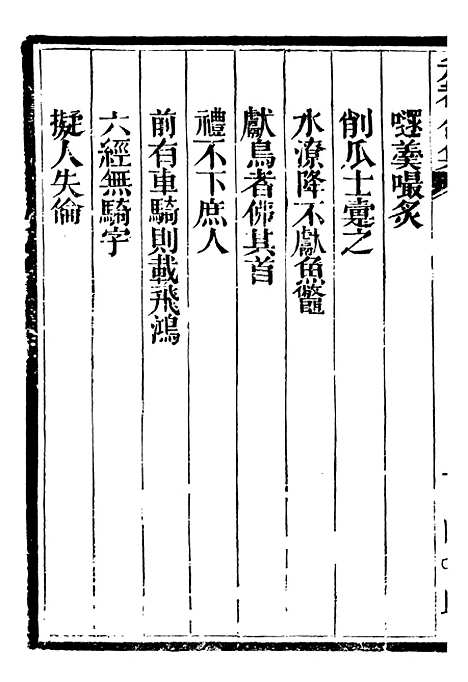 嚃羹嘬炙
削瓜士疐之
水潦降不獻魚鼈
獻鳥者佛其首
禮不下庶人
前有車騎則載飛鴻
六經無騎字
擬人失倫